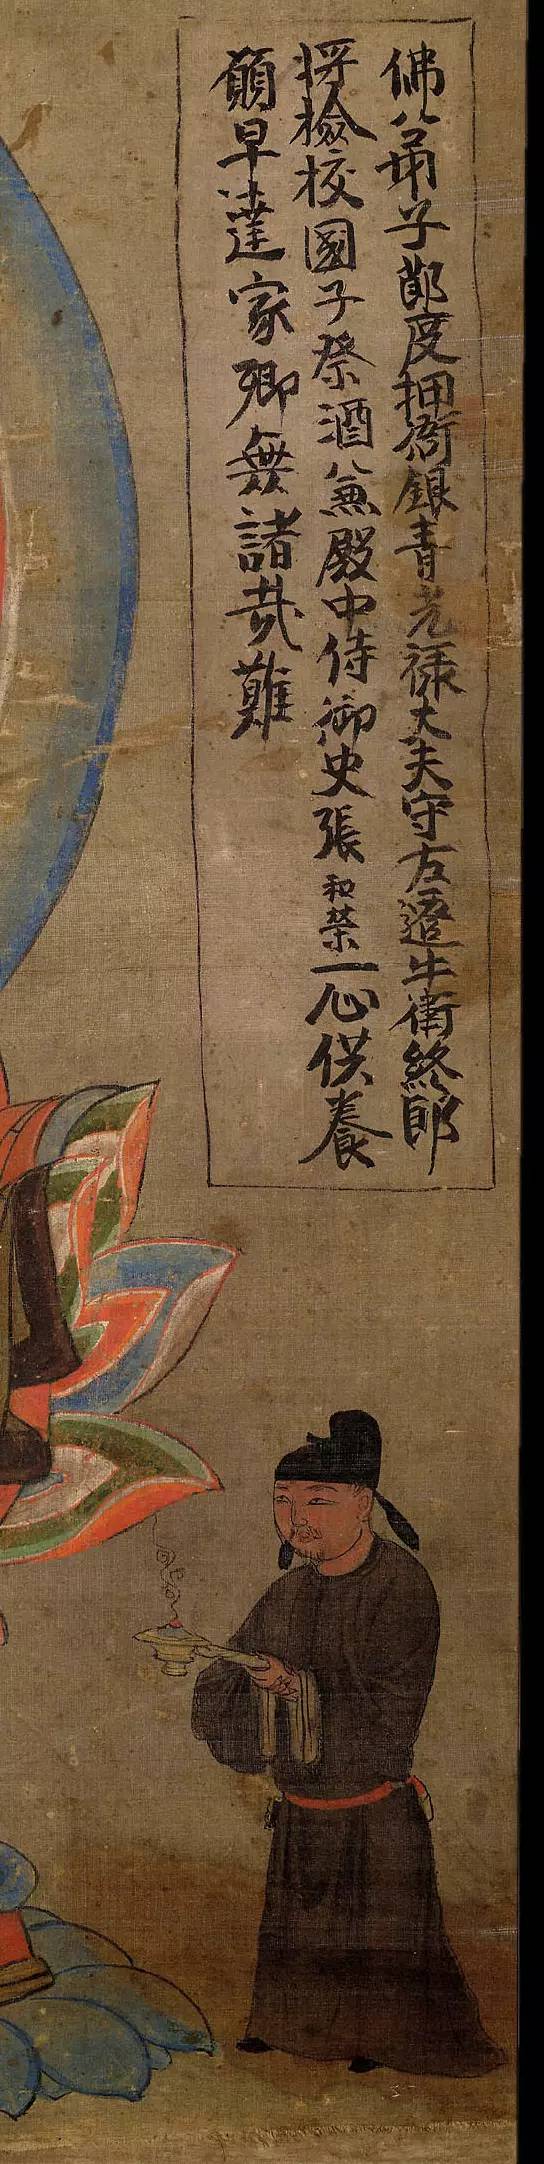 佛弟子節度押衙銀青光祿大夫守左遷牛衛終郎
將檢校國子祭酒兼殿中侍御史張和榮一心供養
願早達家鄉無諸哉難